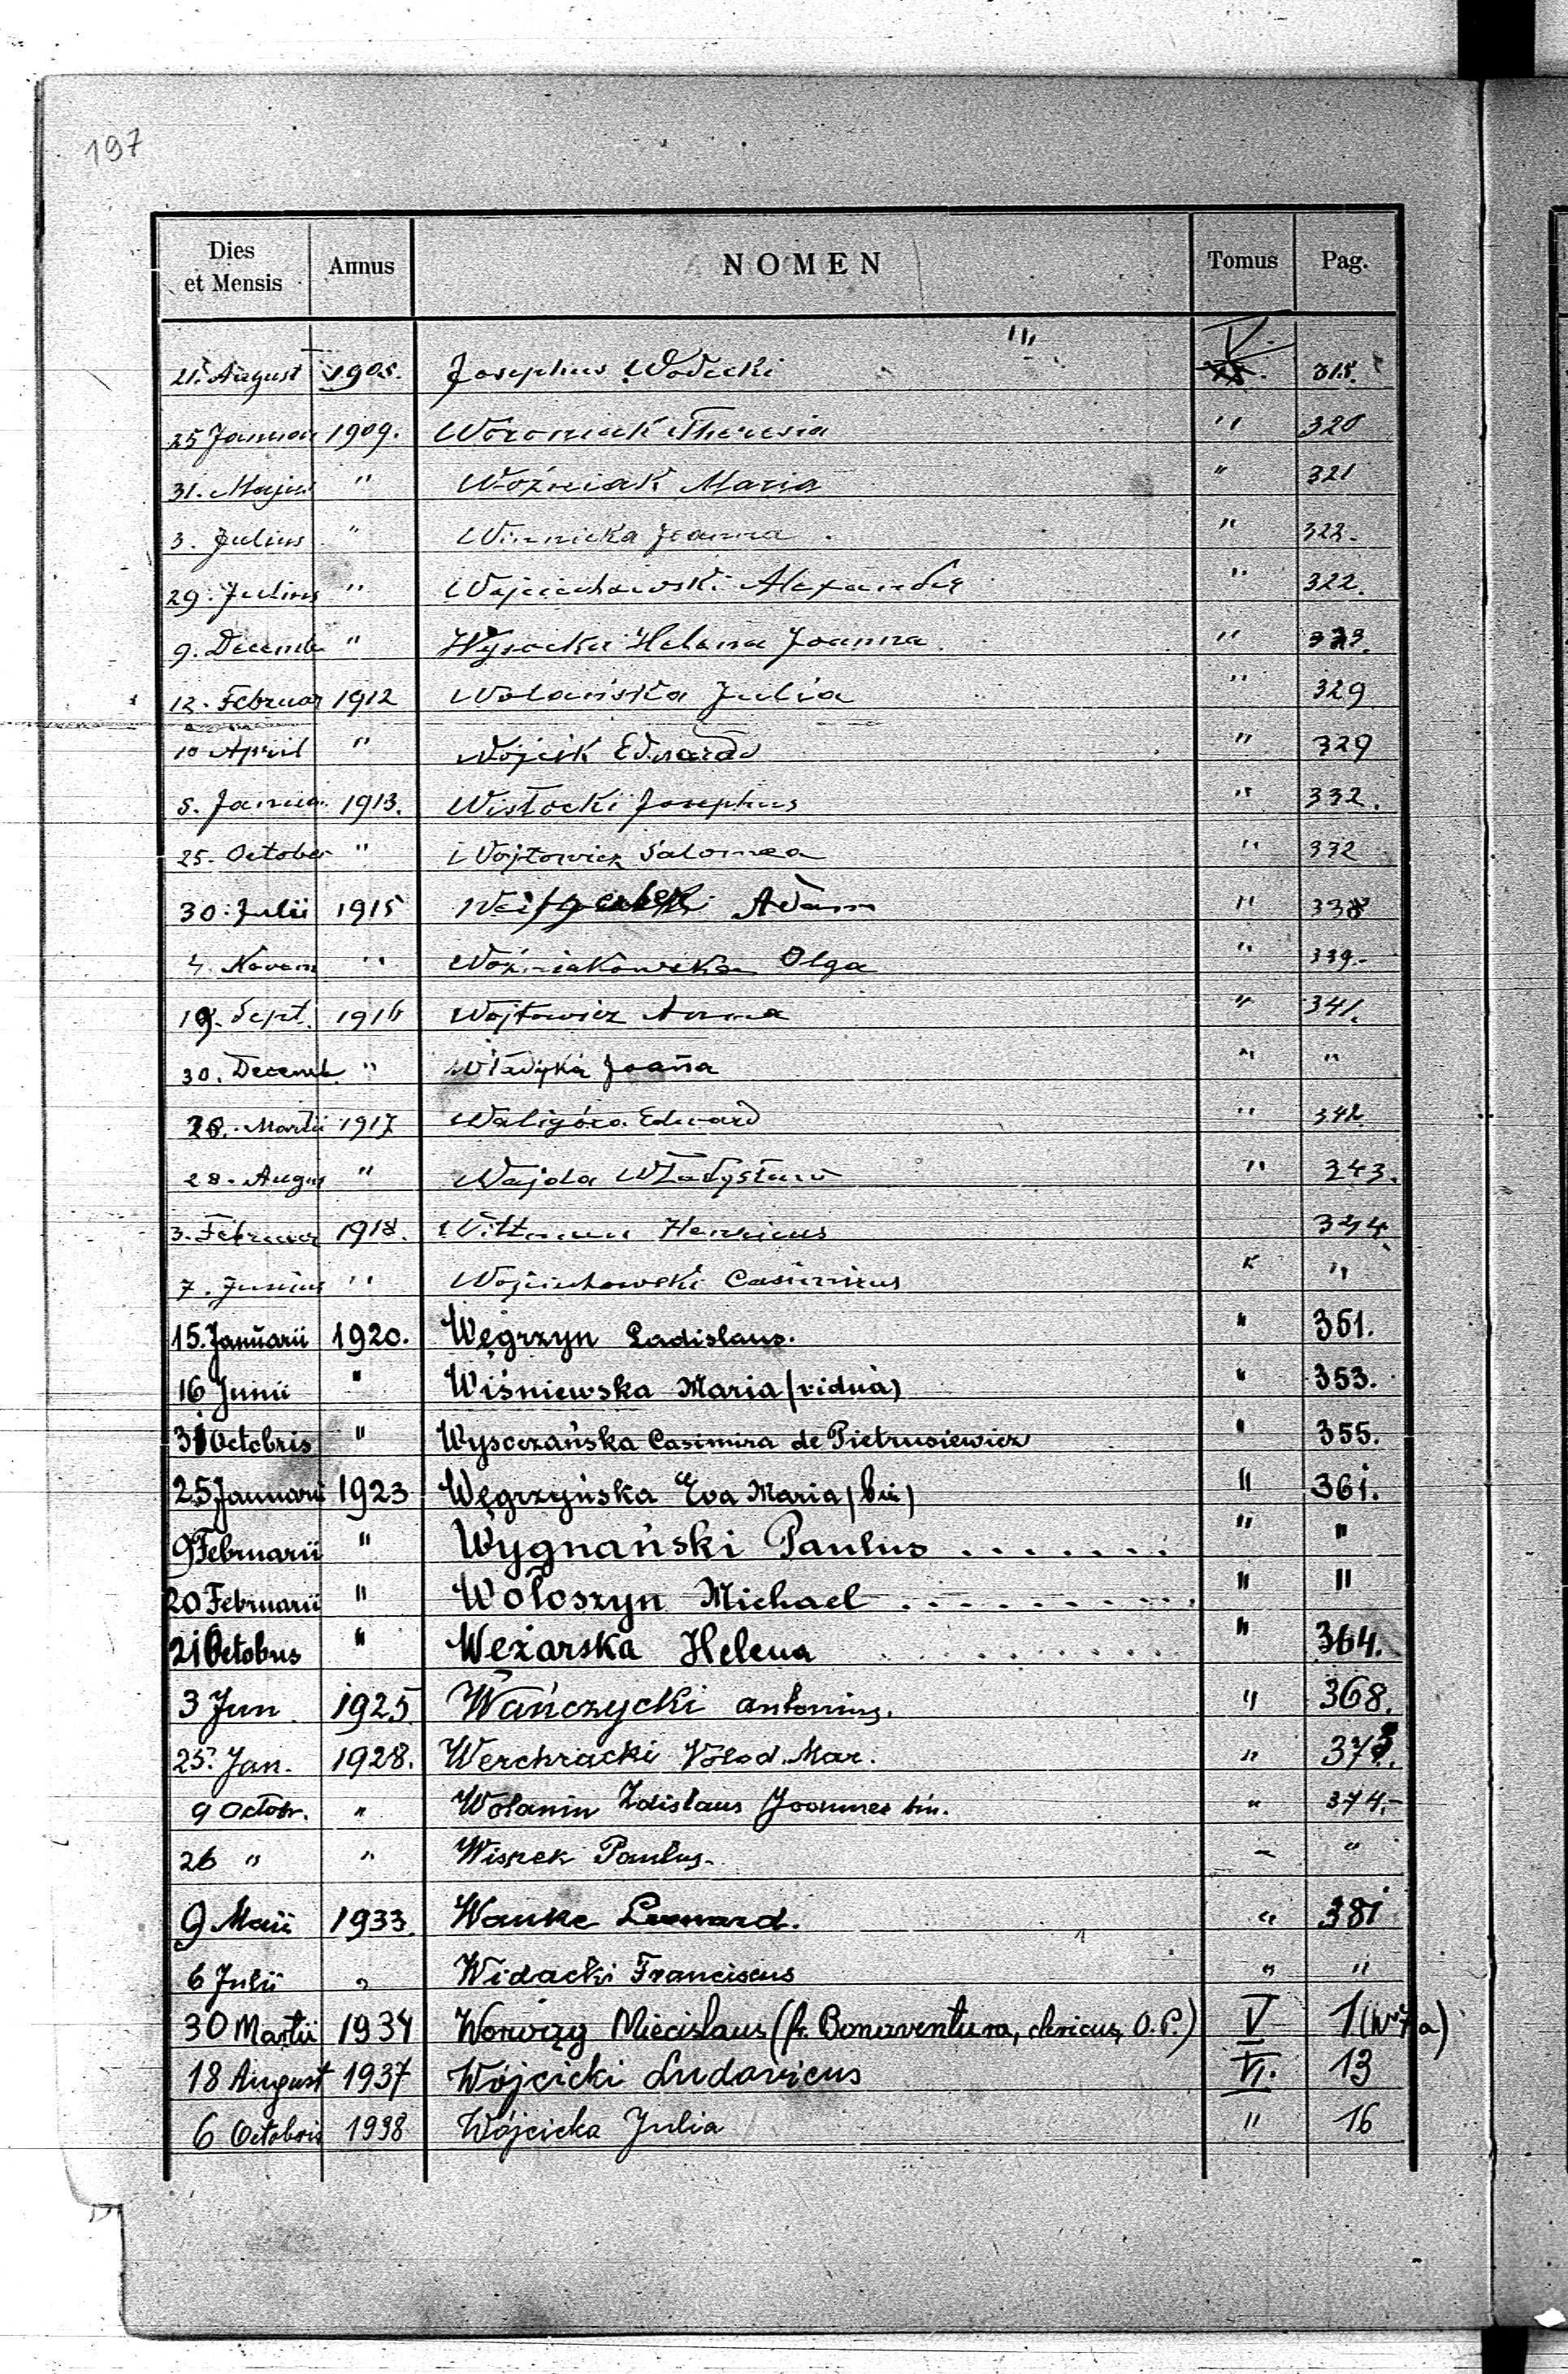 197
Dies et Mensis Annus NOMEN Tomus Pag.
21. August 1905. Josephus Wodecki 315.
25 Januar 1909. Woroniak Theresia " 320
31. Majus " Woźniak Maria " 321
3. Julius " Winnicka Joanna " 322.
29. Julius " Wojciechowski Alexander " 322.
9. Decemb " Wysocka Helena Joanna " 323.
12. Februar 1912 Wolańska Julia " 329
10 April " Wójcik Edward " 329
5. Janua. 1913. Wisłocki Josephus " 332.
25. October " Wojtowicz Salomea " 332
30. Julii 1915 Adam " 338
4. Novem " Woźniakowska Olga " 339.
19. Sept. 1916 Wojtowicz Anna " 341.
30. Decemb. " Władyka Joanna " "
28. Martii 1917 Waligóra Edward " 342.
28. Augus " Wajda Władysław " 343.
3. Februar 1918. Henricus 344.
7. Junius " Wojciechowski Casimirus " "
15. Januarii 1920. Węgrzyn Ladislaus. " 351.
16 Junii " Wiśniewska Maria (vidua) " 353.
31 Octobris " Wysoczańska Casimira de Pietrusiewicz " 355.
25 Januarii 1923 Węgrzyńska Eva Maria (bin) " 361.
9 Februarii " Wygnański Paulus . . . . . . . " "
20 Februarii " Wołoszyn Michael . . . . . . . . . . " "
21 Octobris " Weżarska Helena . . . . . . . . . " 364.
3 Jun. 1925 Wańczycki Antonius. " 368.
25. Jan. 1928. Werchracki Volod. Mar. " 373.
9 Octobr. " Wolanin Zdislaus Joannes bin. " 374.-
26 " " Wiszek Paulus. " "
9 Maii 1933. Wanke Leonard. " 381
6 Julii " Widacki Franciscus " "
30 Martii 1934 Worwizy Miecislaus (fr. Bonaventura, clericus, O.P.) V 1 (Nr 7a)
18 August 1937 Wójcicki Ludovicus VI. 13
6 Octobris 1938 Wójcicka Julia " 16